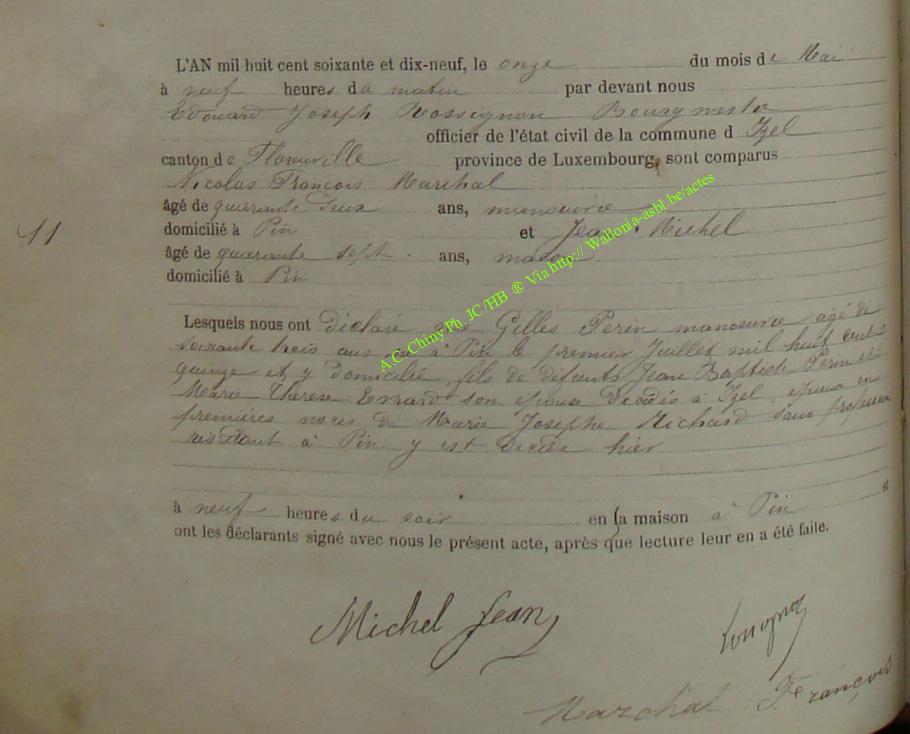 L'AN mil huit cent soixante et dix-neuf, le onze du mois de Mai
à neuf heures du matin par devant nous
Edouard Joseph Rossignon Bourgmestre
officier de l'état civil de la commune d Izel
canton de Florenville province de Luxembourg, sont comparus
Nicolas François Marchal
âgé de quarante deux ans, manoeuvre
domicilié à Pin et Jean Michel
11
âgé de quarante sept ans, maçon
domicilié à Pin
Lesquels nous ont déclaré que Gilles Perin manoeuvre âgé de
soixante trois ans né à Pin le premier Juillet mil huit cent
quinze et y domicilié, fils de défunts Jean Baptiste Perin et
Marie Thérèse Errard son épouse décédés à Izel, époux en
premières noces de Marie Josephe Richard sans profession
résidant à Pin y est décédé hier
à neuf heures du soir en la maison à Pin et
ont les déclarants signé avec nous le présent acte, après que lecture leur en a été faite.
Michel Jean
Marchal François
A.C. Chiny Ph. JC/HB ® Via http:// Wallonia-asbl.be/actes